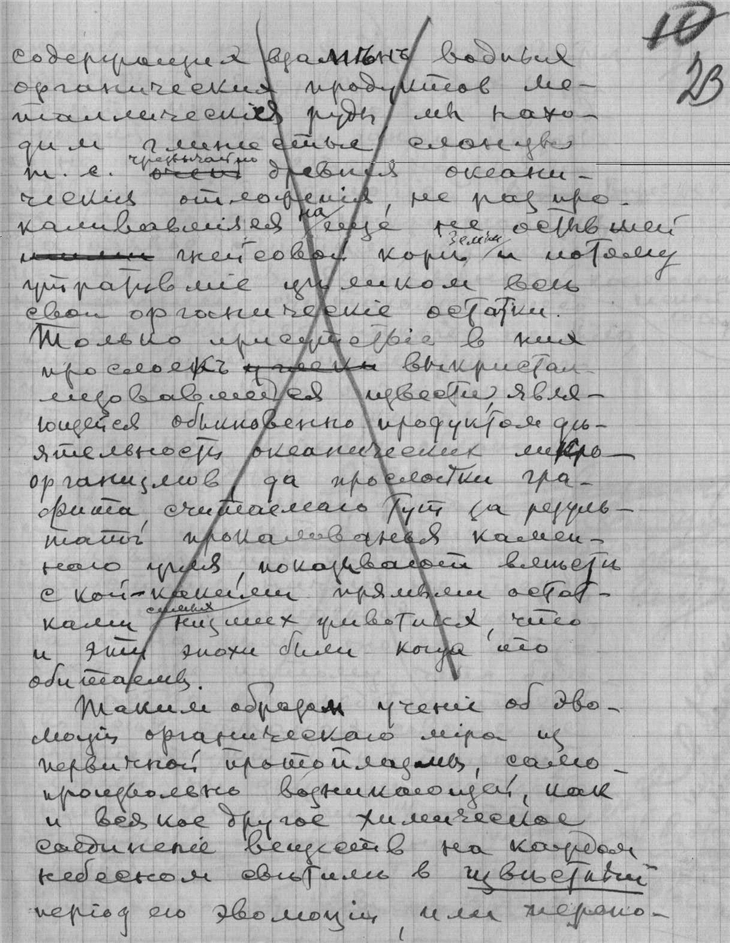 10
23
содержащия взамѣнъ водныя
органическия продуктов ме-
таллическия руды мы нахо-
дим глинистые сланцы
т. е. чрезвычайно древния океани-
ческия отложения, не раз про-
каливавшияся на еще не остывшей
гнейсовой коры земли и потому
утратившие целиком все
свои органические остатки.
Только присутствие в них
прослоекъ выкристал-
лизовавшейся извести, явля-
ющейся обыкновенно продуктом дѣ-
ятельности океанических микро-
организмов, да прослойки гра-
фита считаемаго тут за резуль-
таты прокаливанья камен-
ного угля, показывают вместе
с кой-какими прямыми остат-
ками самых низших животных, что
и эти эпохи были когда то
обитаемы.
Таким образом учение об эво-
люции органическаго мира из
первичной протоплазмы, само-
произвольно возникающей, как
и всякое другое химическое
соединение веществ на каждом
небесном светиле в известный
период его эволюции, или перено-